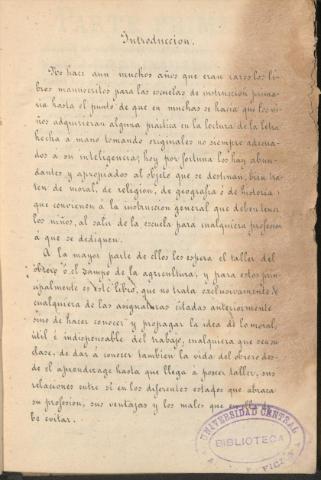 Introduccion.
No hace aun muchos años que eran raros los li-
bros manuscritos para las escuelas de instruccion prima-
ria hasta el punto de que en muchas se hacia que los ni-
ños adquirieran alguna práctica en la lectura de la letra
hecha a mano tomando originales no siempre adecua-
dos a su inteligencia; hoy por fortuna los hay abun-
dantes y apropiados al objeto que se destinan, bien tra-
ten de moral, de religion, de geografía ó de historia,
que convienen à la instruccion general que deben tener
los niños, al salir de la escuela para cualquiera profesion
á que se dediquen.
A la mayor parte de ellos les espera el taller del
obrero ó el campo de la agricultura, y para estos prin-
cipalmente es este libro, que no trata exclusivamente de
cualquiera de las asignaturas citadas anteriormente
sino de hacer conocer y propagar la idea de lo moral,
útil é indispensable del trabajo, cualquiera que sea su
clase, de dar á conocer tambien la vida del obrero des-
de el aprendizage hasta que llega á poseer taller, sus
relaciones entre sí en los diferentes estados que abraza
su profesion, sus ventajas y los males que en ella de-
be evitar.
UNIVERSIDAD CENTRAL
BIBLIOTECA